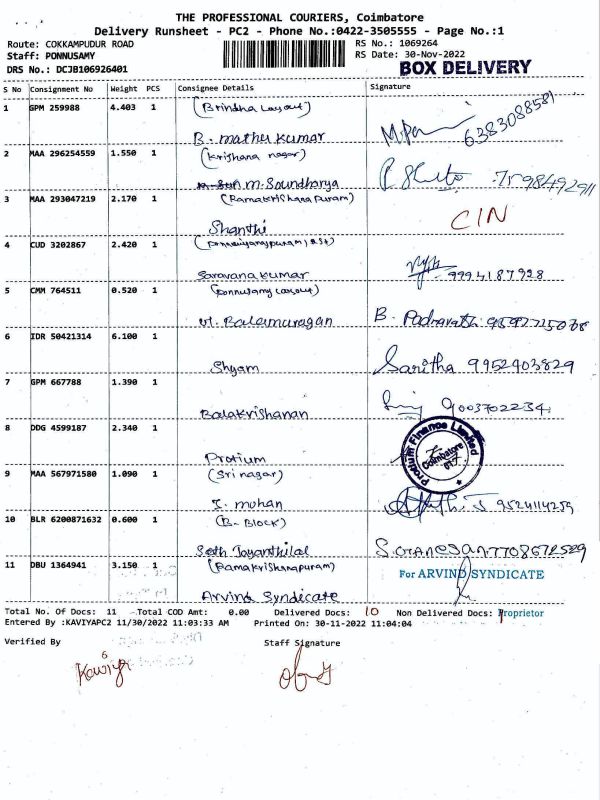 THE PROFESSIONAL COURIERS, Coimbatore
Delivery Runsheet - PC2 - Phone No.:0422-3505555 - Page No.:1
Route: COKKAMPUDUR ROAD RS No.: 1069264
Staff: PONNUSAMY RS Date: 30-Nov-2022
DRS No.: DCJB106926401 BOX DELIVERY
S No Consignment No Weight PCS Consignee Details Signature
1 GPM 259988 4.403 1 (Brindha Layout)
B. mathu kumar 6383088581
2 MAA 296254559 1.550 1 (Krishana nagar)
M. Soundharya
3 MAA 293047219 2.170 1 (Ramakrishana puram)
Shanthi CIN
4 CUD 3202867 2.420 1
Saravana kumar 9994187928
5 CMM 764511 0.520 1 (ponnusamy Layout)
M. Balamuragan B.
6 IDR 50421314 6.100 1
Shyam Saritha 9952403829
7 GPM 667788 1.390 1
Balakrishanan 9003702234
8 DDG 4599187 2.340 1 Protium Finance Limited
Coimbatore
Protium
9 MAA 567971580 1.090 1 (Sri nagar)
I. mohan 9524114259
10 BLR 6200871632 0.600 1 (B- BLOCK)
Seth Jayanthilal S. GANESAN 7708672529
11 DBU 1364941 3.150 1 (Ramakrishnapuram) For ARVIND SYNDICATE
Arvind Syndicate
Total No. Of Docs: 11 Total COD Amt: 0.00 Delivered Docs: 10 Non Delivered Docs: 1 Proprietor
Entered By :KAVIYAPC2 11/30/2022 11:03:33 AM Printed On: 30-11-2022 11:04:04
Verified By Staff Signature
Kaviya